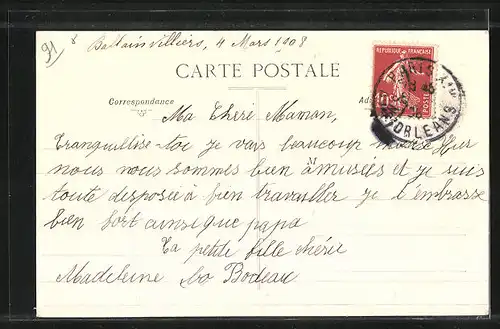 91
Ballainvilliers, 4 Mars 1908
CARTE POSTALE
REPUBLIQUE FRANÇAISE
10
POSTES
ORLEANS
Correspondance
Ma Cheri Maman,
Tranquillise-toi je vais beaucoup mieux Hier
M
nous nous sommes bien amusées et je suis
toute disposée à bien travailler je t'embrasse
bien fort ainsi que papa
Ta petite fille chérie
Madeleine Bodeau